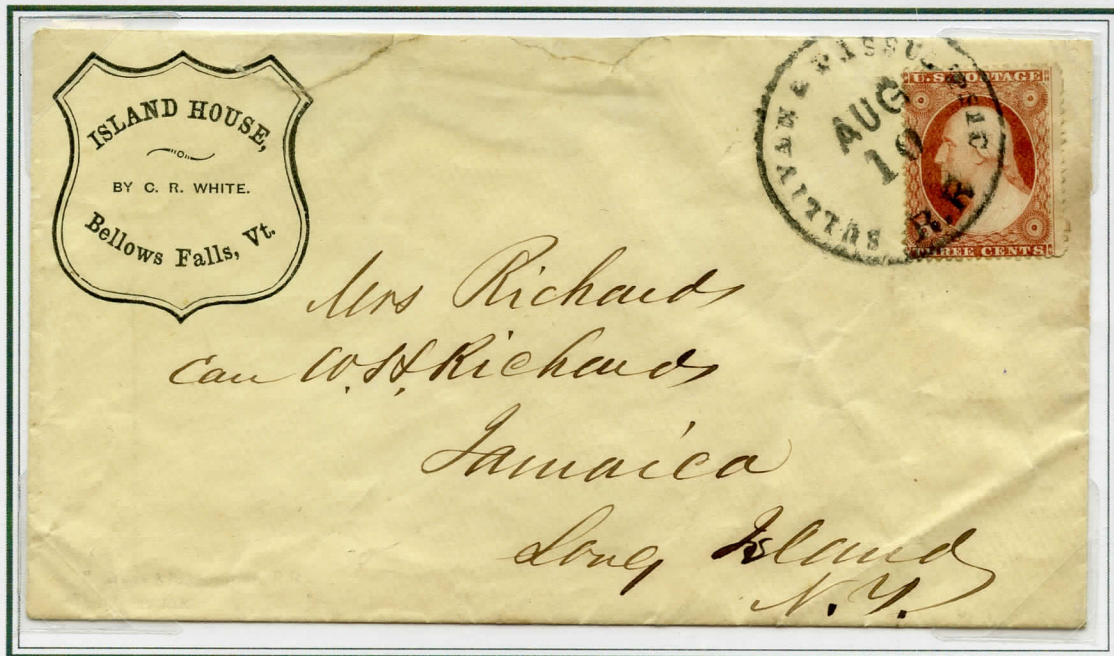 ISLAND HOUSE,
BY C. R. WHITE.
Bellows Falls, Vt.
SULLIVAN & PASSUMPSIC R.R
AUG
19
U.S. POSTAGE
THREE CENTS
Mrs Richards
Care W. H. Richards
Jamaica
Long Island
N. Y.